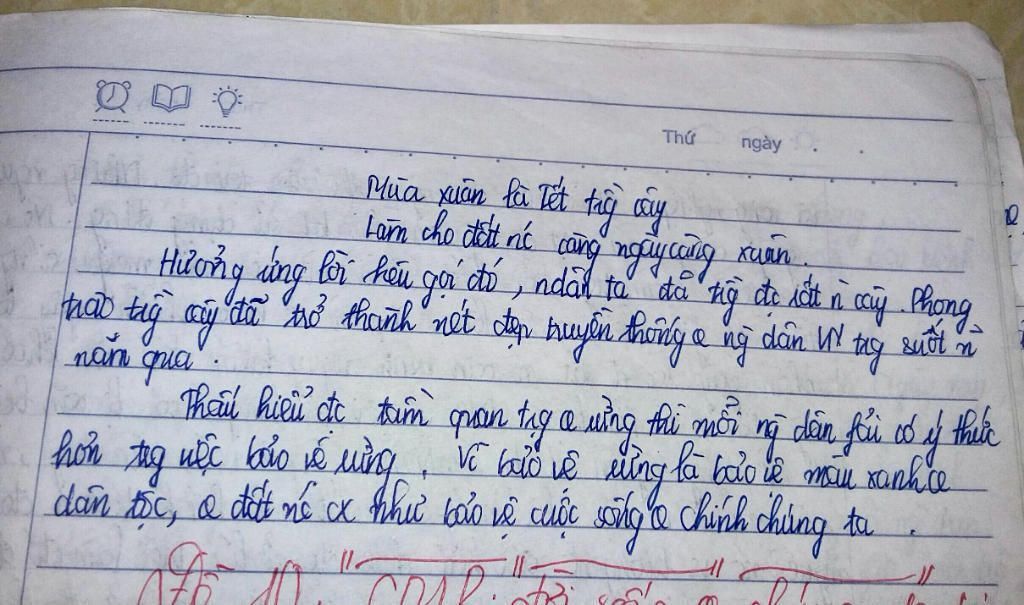 Thứ ngày
Mùa xuân là Tết tրg cây
Làm cho đất nc càng ngày càng xuân.
Hưởng ứng lời kêu gọi đó, ndân ta đã tրg đc rất n cây. Phong
trào cây đã trở thành nét đẹp truyền thống ng dân VN trg suốt n
năm qua.
Thấu hiểu đc tầm quan trg rừng thì mỗi ng dân fải có ý thức
hơn trg việc bảo vệ rừng. Vì bảo vệ rừng là bảo vệ màu xanh
dân tộc, đất nc cx như bảo vệ cuộc sống chính chúng ta.